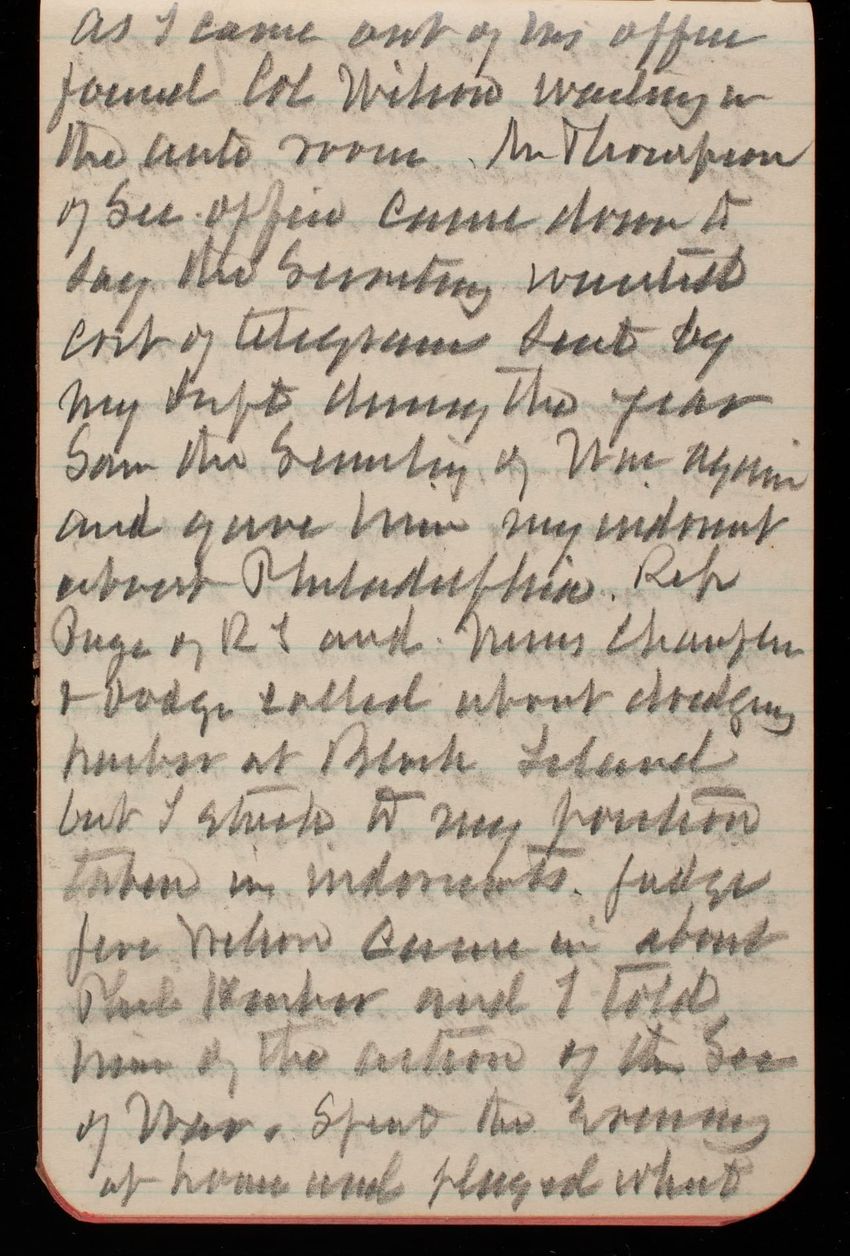 as I came out of his office
found Col Wilson waiting in
the ante room. Mr Thompson
of Sec. office came down to
say the Secretary wanted
cost of telegrams sent by
my dept during the year
Saw the Secretary of War again
and gave him my indorsmt
about Philadelphia. Rep
Page of R I and Messrs Champlin
+ Dodge called about dredging
harbor at Block Island
but I stuck to my position
taken in indorsmts. Judge
Jere Wilson came in about
Phil Harbor and I told
him of the action of the Sec
of War. Spent the evening
at home and played whist